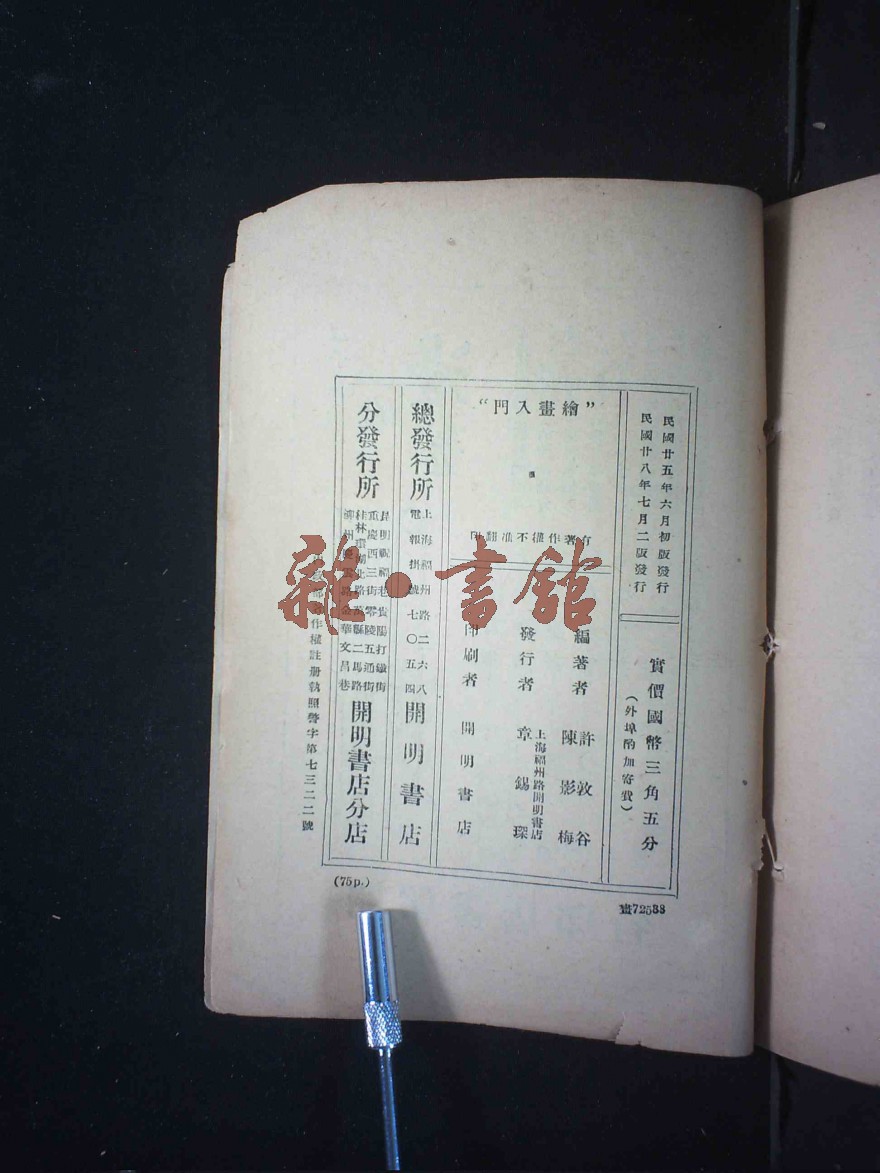 民國廿五年六月初版發行
民國廿八年七月二版發行
實價國幣三角五分
（外埠酌加寄費）
“繪畫入門”
有著作權不准翻印
編著者 許敦谷
陳影梅
發行者 章錫琛
上海福州路開明書店
印刷者 開明書店
總發行所
上海福州路二六八
電報掛號七〇五四
開明書店
分發行所
昆明祝福巷 貴陽打鐵街
重慶西三街 零陵五通街
桂林環湖北路 縣二馬路
柳州 路 金華文昌巷
開明書店分店
作權註冊執照警字第七三二二號
(75p.)
畫72588
雜·書館